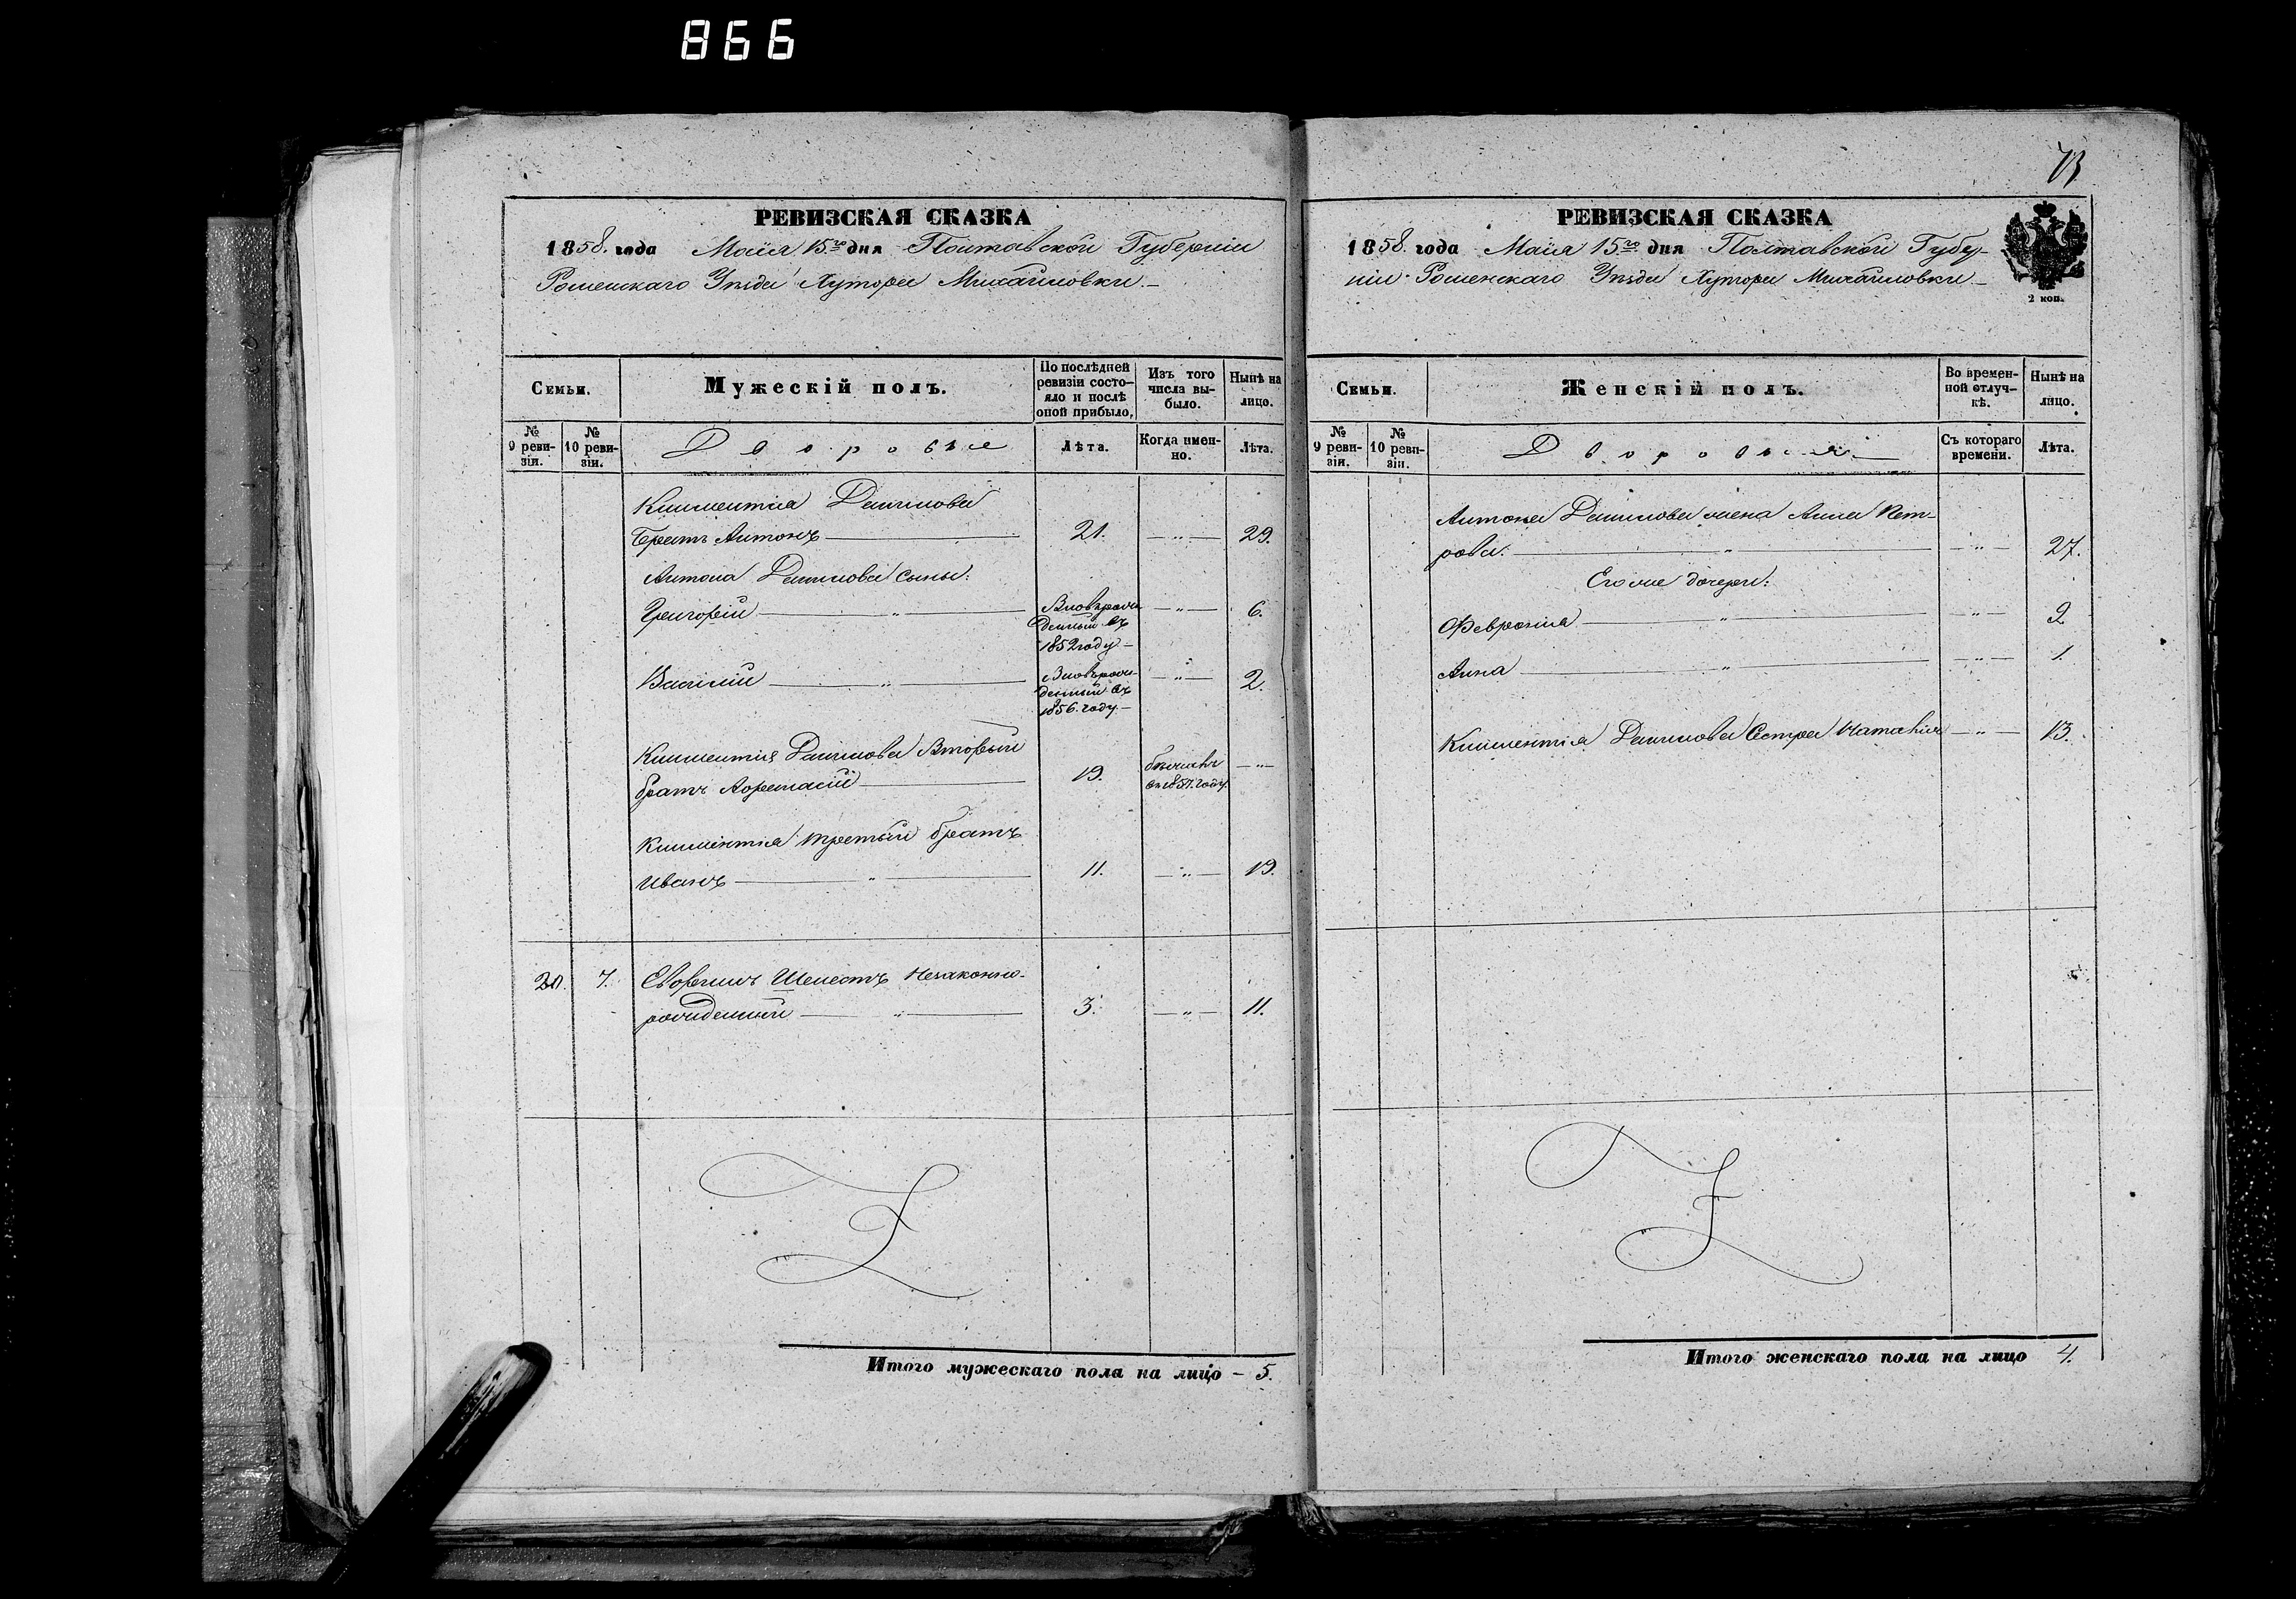 866
РЕВИЗСКАЯ СКАЗКА
1858. года Маія 15го дня Полтавской Губерніи
Роменскаго Уѣзда Хутора Михайловки.–
Семьи.
Мужескій полъ.
По послѣдней ревизіи состо-
яло и послѣ оной прибыло,
Изъ того числа вы-
было.
Нынѣ на лицо.
№ 9 реви-
зіи.
№ 10 реви-
зіи.
Дворовые
Лѣта.
Когда имен-
но.
Лѣта.
Климентія Данилова
Братъ Антонъ — 21. — „ — 29.
Антона Данилова сыны:
Григорій — „ — Вновьрож-
денный въ
1852 году – — „ — 6.
Василій — „ — Вновьрож-
денный въ
1856. году.– — „ — 2.
Климентія Данилова Вторый
братъ Афанасій — 19. бѣжалъ
въ 1857. году. — „ —
Климентія третый братъ
Иванъ — „ — 11. — „ — 19.
20. 7. Шелестъ Незаконно-
рожденный — „ — 3. — „ — 11.
Итого мужескаго пола на лицо – 5.
73
РЕВИЗСКАЯ СКАЗКА
1858. года Маія 15го дня Полтавской Губер-
ніи Роменскаго Уѣзда Хутора Михайловки –
2 коп.
Семьи.
Женскій полъ.
Во времен-
ной отлуч-
кѣ.
Нынѣ на лицо.
№ 9 реви-
зіи.
№ 10 реви-
зіи.
Дворовыя
Съ котораго времени.
Лѣта.
Антона Данилова жена Анна Пет-
рова. — „ — — „ — 27.
Его же дочери:
Февронія — „ — — „ — 2
Анна — „ — — „ — 1.
Климентія Данилова Сестра Наталія — „ — 13.
Итого женскаго пола на лицо 4.